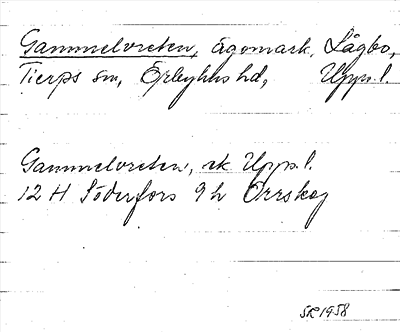 Gammelvreten, ägomark, Lågbo,
Tierps sn, Örbyhus hd, Upps.l.
Gammelvreten, ek Upps.l.
12 H Söderfors 9 h Orrskog
SR 1958